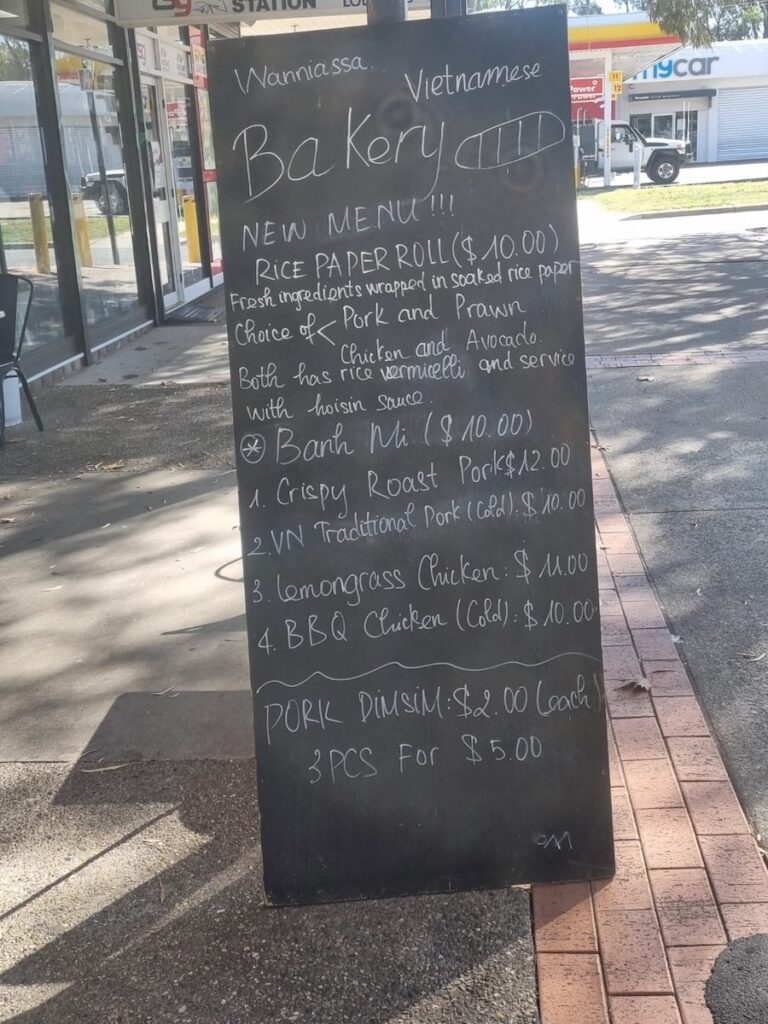 STATION
Wanniassa
Vietnamese
Bakery
NEW MENU!!!
RICE PAPER ROLL ($10.00)
Fresh ingredients wrapped in soaked rice paper
Choice of < Pork and Prawn
Chicken and Avocado.
Both has rice vermicelli and service
with hoisin sauce.
Banh Mi ($10.00)
1. Crispy Roast Pork $12.00
2. VN Traditional Pork (Cold): $10.00
3. Lemongrass Chicken: $11.00
4. BBQ Chicken (Cold): $10.00
PORK DIMSIM: $2.00 (each)
3 PCS For $5.00
mycar
Power